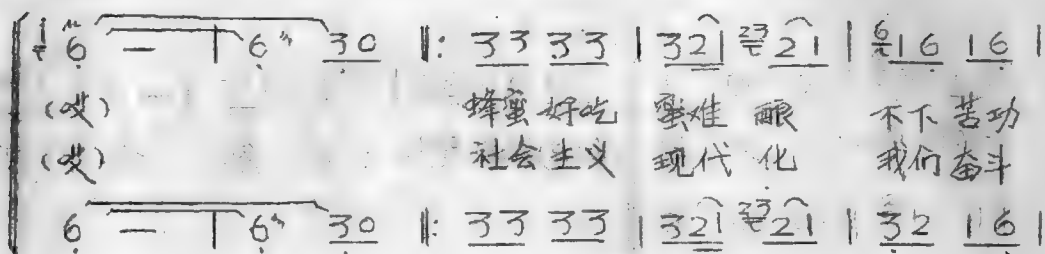 6 — | 6 3 0 ‖: 3 3 3 3 | 3 2 1 23 2 1 | 6 1 6 1 6 |
(哎) 蜂蜜 好吃 蜜难 酿 不下 苦功
(哎) 社会 主义 现代 化 我们 奋斗
6 — | 6 3 0 ‖: 3 3 3 3 | 3 2 1 23 2 1 | 3 2 1 6 |